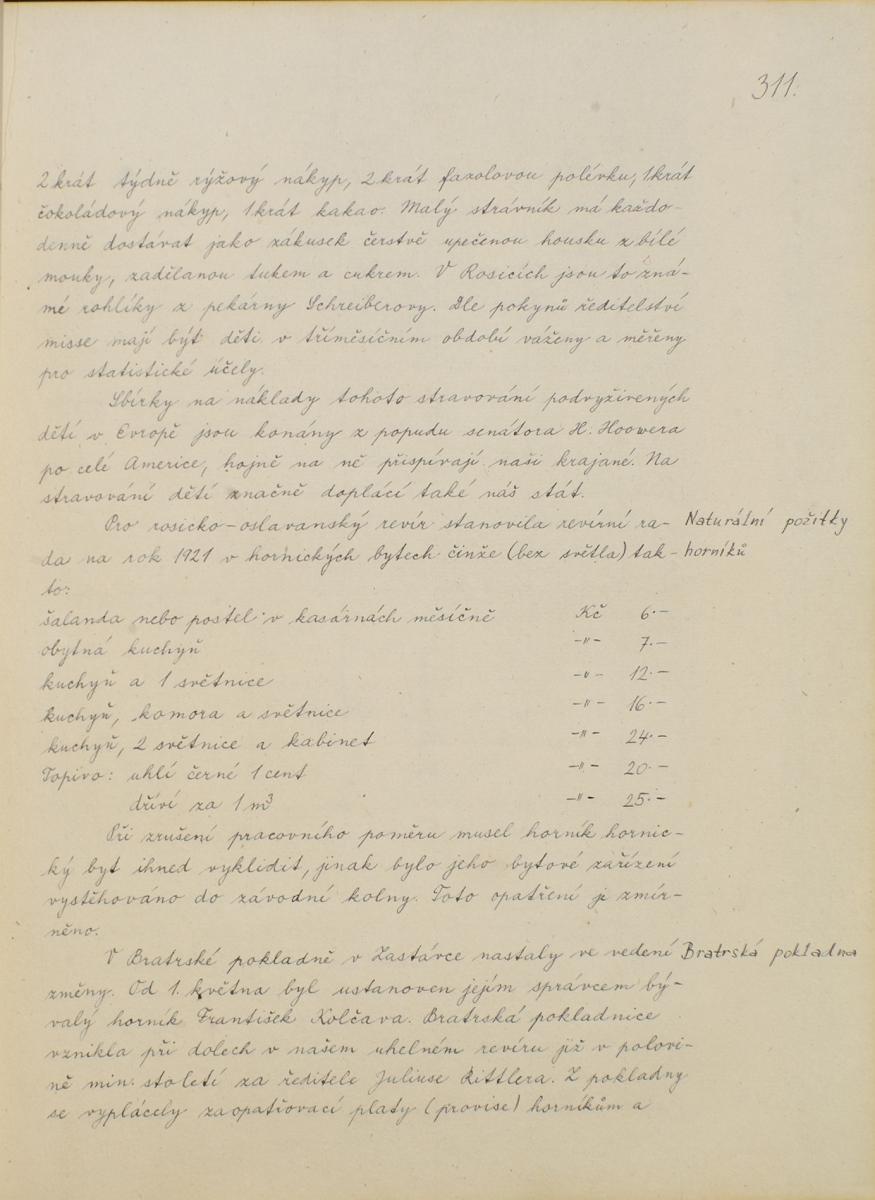 311.
2krát týdně rýžový nákyp, 2krát fazolovou polévku, 1krát
čokoládový nákyp, 1krát kakao. Malý strávník má každo-
denně dostávat jako zákusek čerstvě upečenou housku z bílé
mouky, zadělanou tukem a cukrem. V Rosicích jsou to zná-
mé rohlíky z pekárny Schreiberovy. Dle pokynů ředitelství
misse mají být děti v tříměsíčním období váženy a měřeny
pro statistické účely.
Sbírky na náklady tohoto stravování podvyživených
dětí v Evropě jsou konány z popudu senátora H. Hoowera
po celé Americe, hojně na ně přispívají naši krajané. Na
stravování dětí značně doplácí také náš stát.
Pro rosicko-oslavanský revír stanovila revírní ra- Naturální požitky
da na rok 1921 v hornických bytech činže (bez světla) tak- horníků
to:
šalanda nebo postel v kasárnách měsíčně Kč 6.-
obytná kuchyň -"- 7.-
kuchyň a 1 světnice -"- 12.-
kuchyň, komora a světnice -"- 16.-
kuchyň, 2 světnice a kabinet -"- 24.-
Topivo: uhlí černé 1 cent -"- 20.-
dříví za 1 m³ -"- 25.-
Při zrušení pracovního poměru musel horník hornic-
ký byt ihned vyklidit, jinak bylo jeho bytové zařízení
vystěhováno do závodní kolny. Toto opatření je zmír-
něno.
V Bratrské pokladně v Zastávce nastaly ve vedení Bratrská pokladna
změny. Od 1. května byl ustanoven jejím správcem bý-
valý horník František Kolčava. Bratrská pokladnice
vznikla při dolech v našem uhelném revíru již v polovi-
ně min. století za ředitele Juliuse Rittlera. Z pokladny
se vyplácely zaopatřovací platy (provise) horníkům a